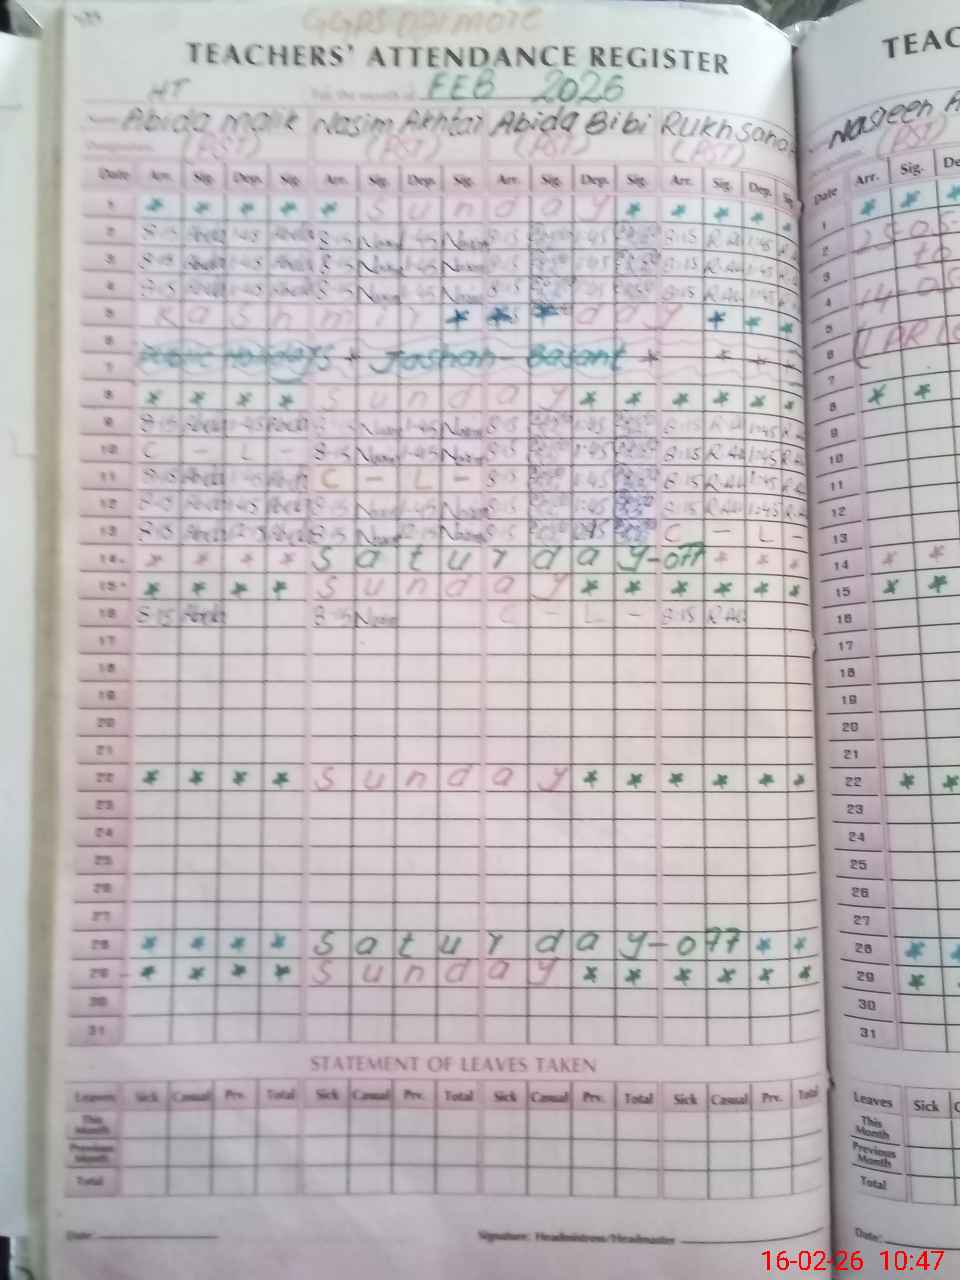 TEACHERS' ATTENDANCE REGISTER
HT
For the month of FEB 2026
Abida malik Nasim Akhtar Abida Bibi Rukhsana
(PST) (PST) (PST) (PST)
Date Arr. Sig. Dep. Sig. Arr. Sig. Dep. Sig. Arr. Sig. Dep. Sig. Arr. Sig. Dep. Sig.
1 * * * * * S u n d a y * * * * *
2 8:15 Abida 1:45 Abida 8:15 Nasim 1:45 Nasim 8:15 1:45 8:15 R.Ali 1:45
3 8:15 Abida 1:45 Abida 8:15 Nasim 1:45 Nasim 8:15 1:45 8:15 R.Ali 1:45
4 8:15 Abida 1:45 Abida 8:15 Nasim 1:45 Nasim 8:15 1:45 8:15 R.Ali 1:45
5 K a s h m i r * * * d a y * * *
6
7 Public Holidays * Jashan - Basant * * * *
8 * * * * S u n d a y * * * * * *
9 8:15 Abida 1:45 Abida 8:15 Nasim 1:45 Nasim 8:15 1:45 8:15 R.Ali 1:45
10 C - L - 8:15 Nasim 1:45 Nasim 8:15 1:45 8:15 R.Ali 1:45
11 8:15 Abida 1:45 Abida C - L - 8:15 1:45 8:15 R.Ali 1:45
12 8:15 Abida 1:45 Abida 8:15 Nasim 1:45 Nasim 8:15 1:45 8:15 R.Ali 1:45
13 8:15 Abida Abida 8:15 Nasim Nasim 8:15 C - L -
14 * * * * S a t u r d a y - off * * *
15 * * * * S u n d a y * * * * * *
16 8:15 Abida 8:15 Nasim C - L - 8:15 R.Ali
17
18
19
20
21
22 * * * * S u n d a y * * * * * *
23
24
25
26
27
28 * * * * S a t u r d a y - off * *
29 * * * * S u n d a y * * * * * *
30
31
STATEMENT OF LEAVES TAKEN
Leaves Sick Casual Prv. Total Sick Casual Prv. Total Sick Casual Prv. Total Sick Casual Prv. Total
This Month
Previous Month
Total
Date: Signature: Headmistress/Headmaster
TEAC
Nasreen A
(PST)
Date Arr. Sig. De
1 * * *
2
3 to
4
5
6
7
8 * *
9
10
11
12
13
14 * *
15 * *
16
17
18
19
20
21
22 * *
23
24
25
26
27
28 * *
29 *
30
31
Leaves Sick C
This Month
Previous Month
Total
Date:
16-02-26 10:47